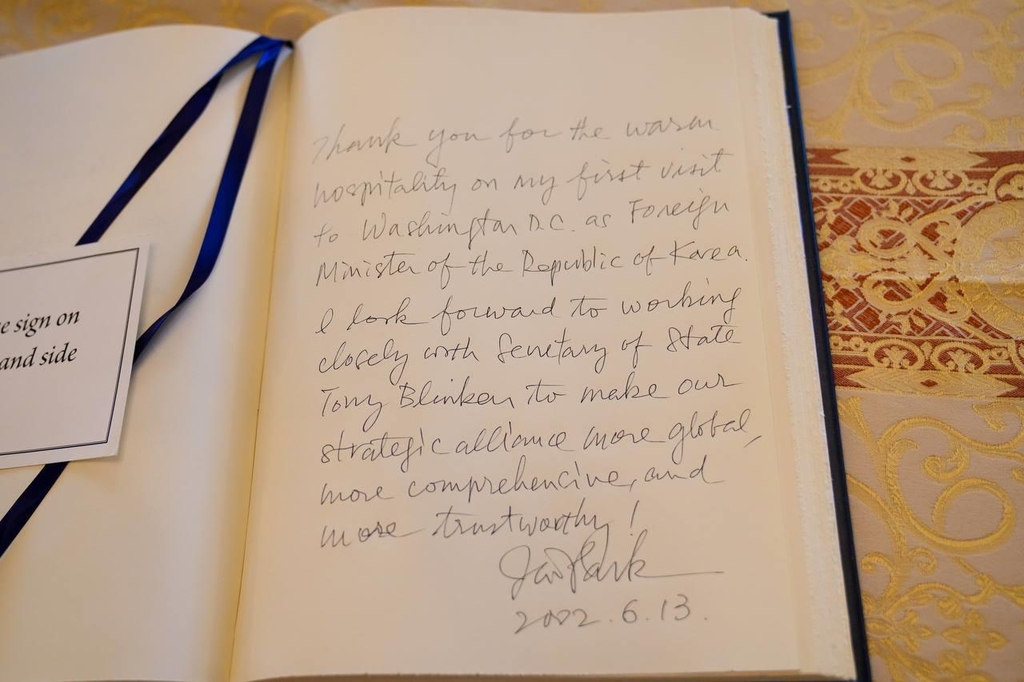 e sign on
and side
Thank you for the warm
hospitality on my first visit
to Washington D.C. as Foreign
Minister of the Republic of Korea.
I look forward to working
closely with Secretary of State
Tony Blinken to make our
strategic alliance more global,
more comprehencive, and
more trustworthy!
Park
2022.6.13.